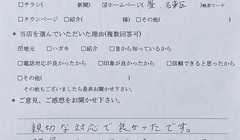 □チラシ（　　　　　）□新聞（　　　　　）☑ホームページ（畳、名東区）検索ワード
□タウンページ　□紹介（　　　　　様）□その他（　　　　　）
● 当店を選んでいただいた理由(複数回答可)
☑地元　□ハガキ　□紹介　□昔から知っているから
□電話対応が良かったから　□印象が良かったから　□信頼できると思ったから
□その他(　　　　　)
※その他もございましたら是非お聞かせ下さい。
● ご意見、ご感想をお聞かせ下さい。
親切な対応で良かったです。